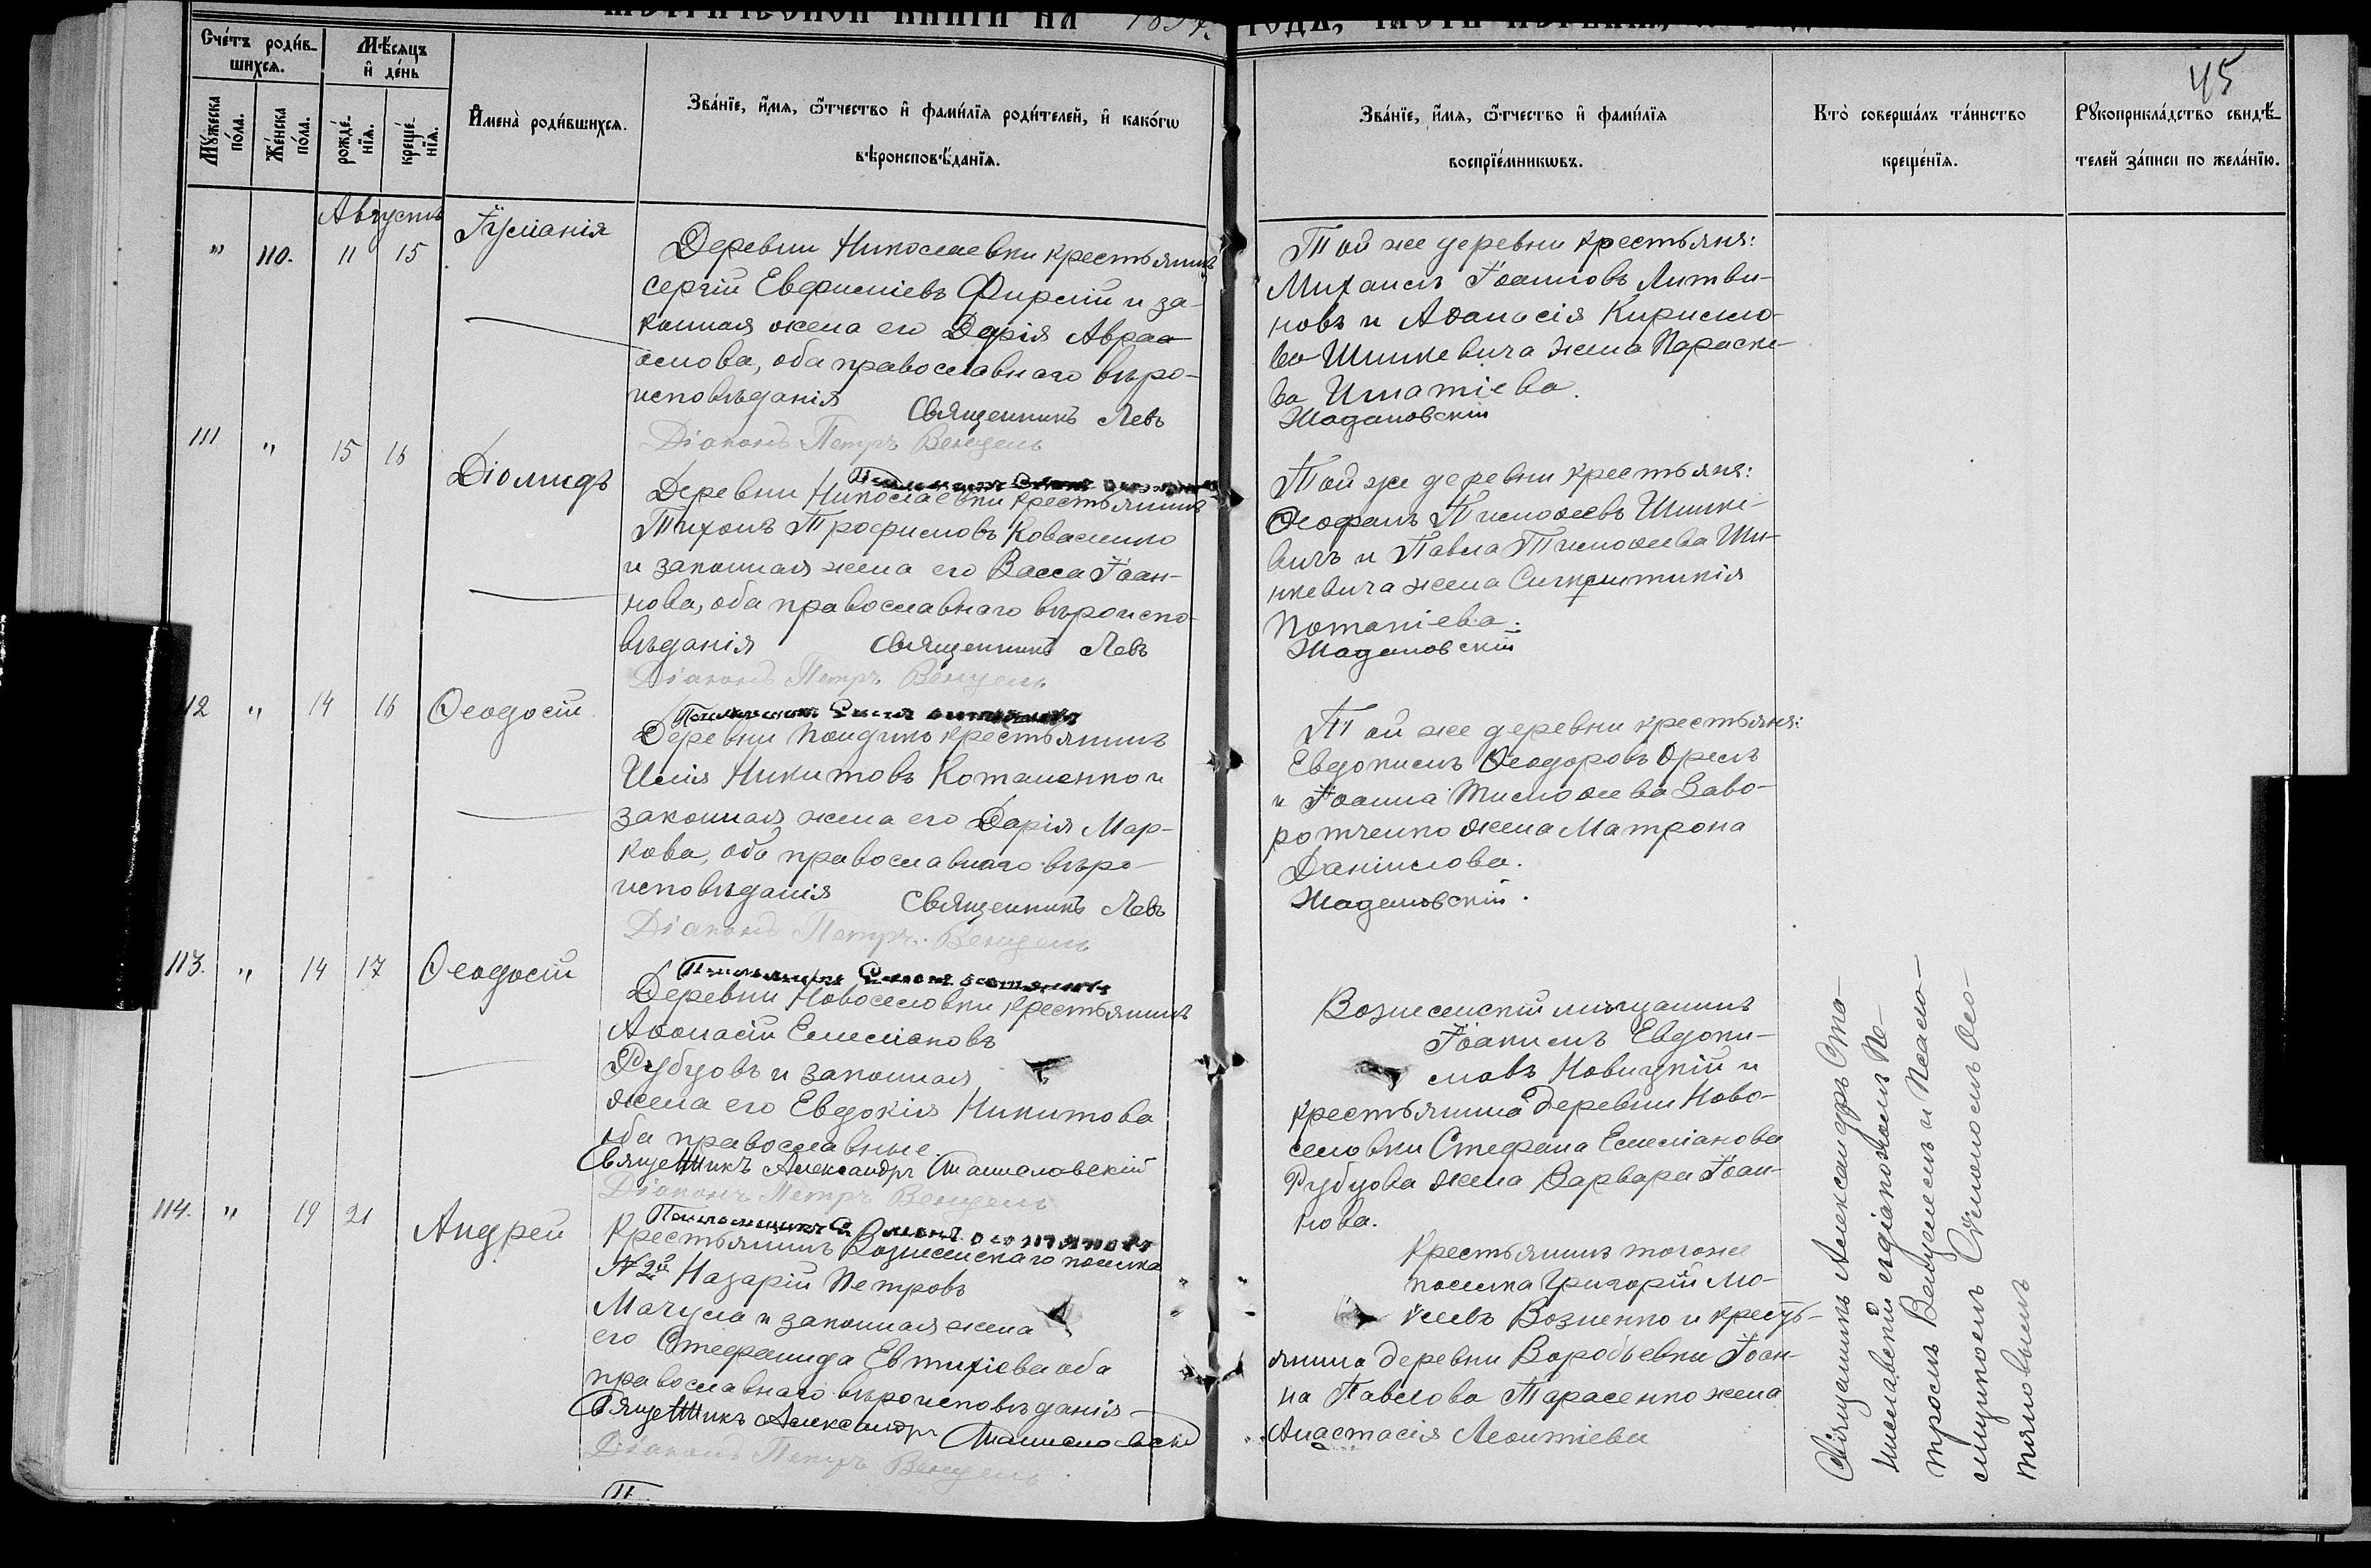 МЕТРИЧЕСКОЙ КНИГИ НА 1897 ГОДА, ЧАСТИ ПЕРВЫЯ,
45
Сче́тъ роди́в-
шихся.
Мѣ́сяцъ
и҆ де́нь
Мꙋ́жеска по́ла.
Же́нска по́ла.
рожде́-
нїя.
креще́-
нїя.
И҆мена̀ роди́вшихся.
Зва́нїе, и҆́мя, ѻ҆́тчество и҆ фами́лїя роди́телей, и҆ како́гѡ
вѣроисповѣ́данїя.
Зва́нїе, и҆́мя, ѻ҆́тчество и҆ фами́лїя
воспрїе́мникѡвъ.
Кто̀ соверша́лъ та́инство
креще́нїя.
Рꙋкоприкла́дство свидѣ́-
телей за́писи по жела́нїю.
Августъ
" 110. 11 15
Іуліанія
Деревни Николаевки крестьянинъ
Сергій Евфиміевъ Фирсій и за-
конная жена его Дарія Авраа-
мова, оба православнаго вѣро-
исповѣданія
Священникъ Левъ
Діаконъ Петръ Венцель
Той же деревни крестьяне:
Михаилъ Іоанновъ Литви-
новъ и Аѳанасія Кирилло-
ва Шинкевича жена Параске-
ва Игнатіева.
Жадановскій
111 " 15 16
Діомидъ
Деревни Николаевки крестьянинъ
Тихонъ Трофимовъ Коваленко
и законная жена его Васса Іоан-
нова, оба православнаго вѣроиспо-
вѣданія
Священникъ Левъ
Діаконъ Петръ Венцель
Той же деревни крестьяне:
Ѳеофанъ Тимоѳеевъ Шинке-
вичъ и Павла Тимоѳеева Ши-
нкевича жена Синклитикія
Потапіева.
Жадановскій
12 " 14 16
Ѳеодосій
Деревни крестьянинъ
Илія Никитовъ Коталенко и
законная жена его Дарія Мар-
кова, оба православнаго вѣро-
исповѣданія
Священникъ Левъ
Діаконъ Петръ Венцель
Той же деревни крестьяне:
Евдокимъ Ѳеодоровъ Орелъ
и Іоанна Тимоѳеева Заво-
ротченко жена Матрона
Даніилова.
Жадановскій.
113. " 14 17
Ѳеодосій
Деревни Новоселовки крестьянинъ
Аѳанасій Емеліановъ
Рубцовъ и законная
жена его Евдокія Никитова
оба православные.
Священникъ Александръ Станиславскій
Діаконъ Петръ Венцель
Вознесенскій мѣщанинъ
Іоакимъ Евдоки-
мовъ Новицкій и
крестьянина деревни Ново-
селовки Стефана Емеліанова
Рубцова жена Варвара Іоан-
нова.
114. " 19 21
Андрей
Крестьянинъ Вознесенскаго поселка
№ 2й Назарій Петровъ
Мачула и законная жена
его Стефанида Евтихіева оба
православнаго вѣроисповѣданія
Священникъ Александръ Станиславскій
Діаконъ Петръ Венцель
Крестьянинъ тогоже
поселка Григорій Мо-
ѵсеевъ Возненко и кресть-
янина деревни Воробьевки Іоан-
на Павлова Тарасенко жена
Анастасія Леонтіева
Священникъ Александръ Ста-
ниславскій съ діакономъ Пе-
тромъ Венцелемъ и псало-
мщикомъ Сѵмеономъ Осо-
тяновымъ